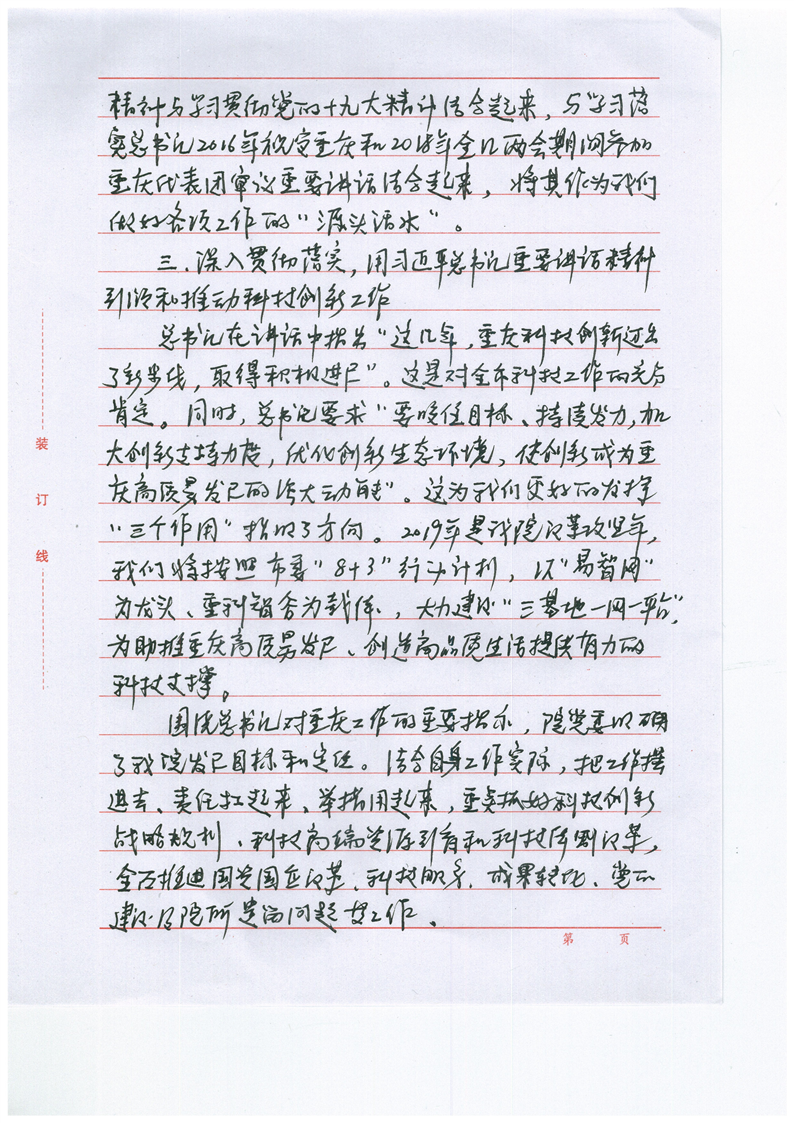 精神与学习贯彻党的十九大精神结合起来，与学习落
实总书记2016年视察重庆和2018年全国两会期间参加
重庆代表团审议重要讲话结合起来，将其作为我们
做好各项工作的“源头活水”。
三、深入贯彻落实，用习近平总书记重要讲话精神
引领和推动科技创新工作
总书记在讲话中指出“这几年，重庆科技创新迈出
了新步伐，取得积极进展”。这是对全市科技工作的充分
肯定。同时，总书记要求“要咬住目标、持续发力，加
大创新支持力度，优化创新生态环境，使创新成为重
庆高质量发展的强大动能”。这为我们更好的发挥
“三个作用”指明了方向。2019年是我院改革攻坚年，
我们将按照市委“8+3”行动计划，以“易智网”
为龙头、重科智谷为载体，大力建设“三基地一网一平台”，
为助推重庆高质量发展、创造高品质生活提供有力的
科技支撑。
围绕总书记对重庆工作的重要指示，院党委明确
了我院发展目标和定位。结合自身工作实际，把工作摆
进去、责任扛起来、举措用起来，重点抓好科技创新
战略规划、科技高端资源引育和科技体制改革，
全面推进国资国企改革、科技服务、成果转化、党的
建设及院所遗留问题等工作。
装
订
线
第 页